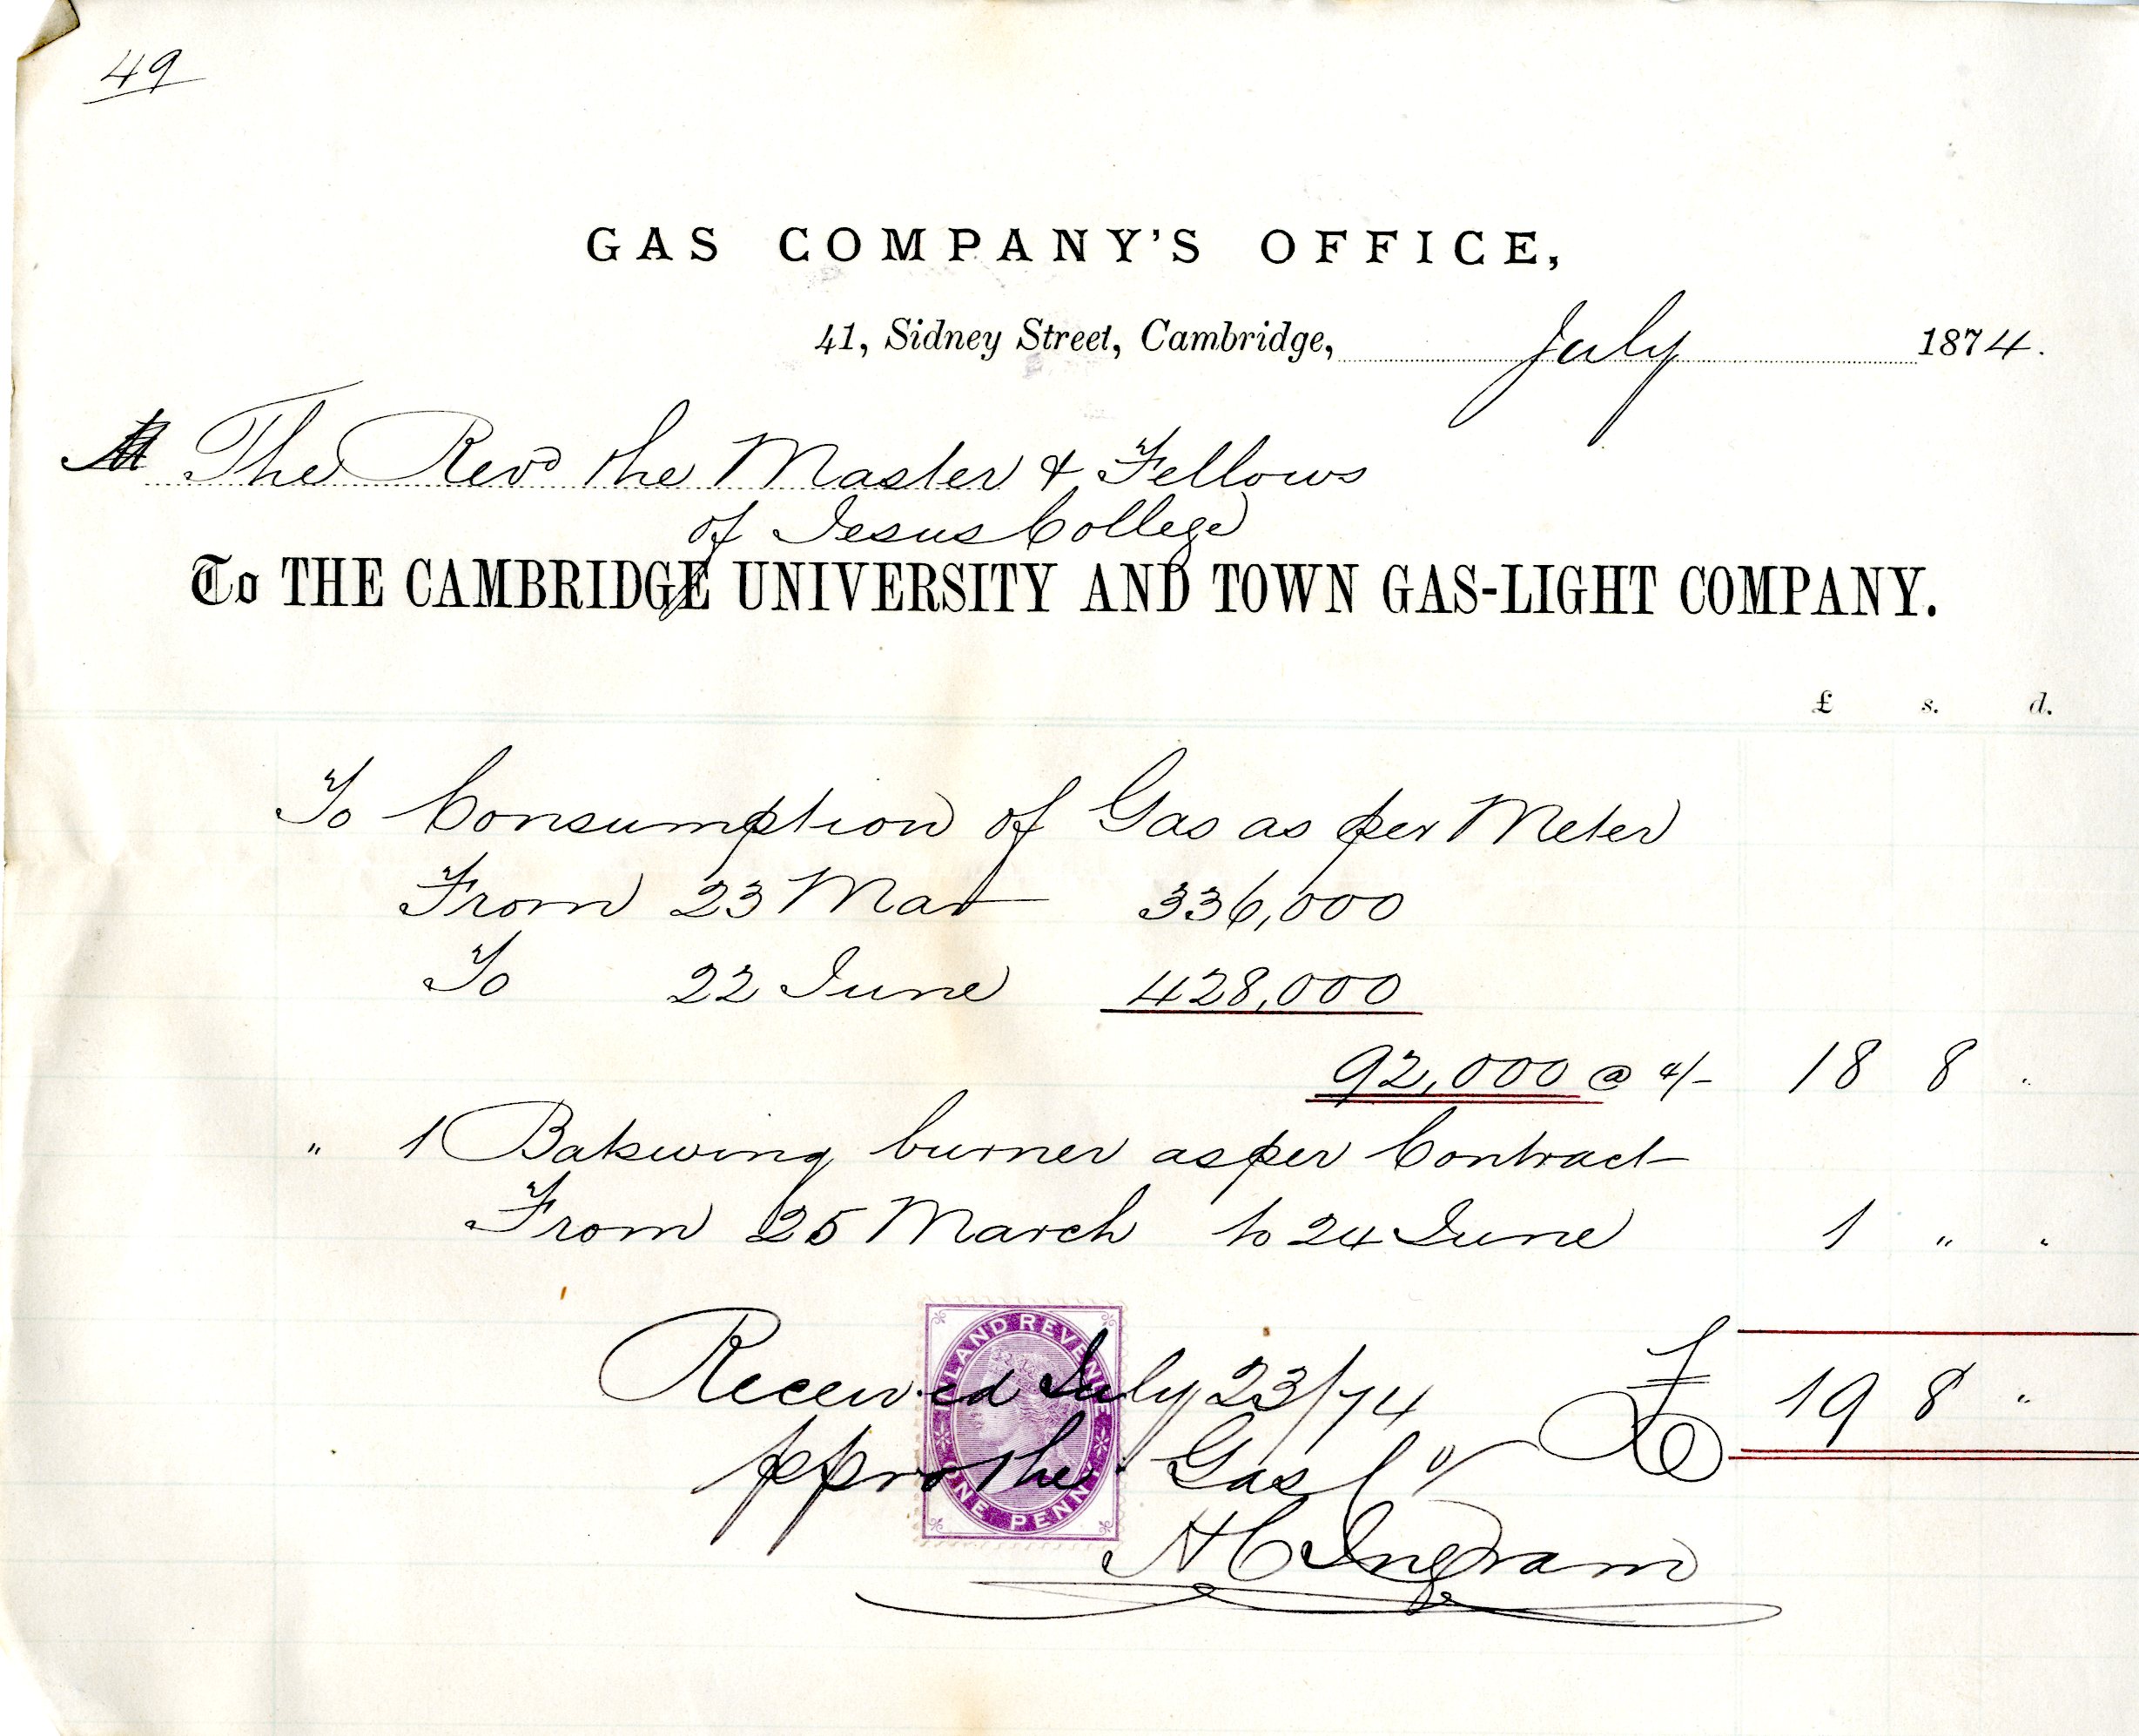 49
GAS COMPANY'S OFFICE,
41, Sidney Street, Cambridge, July 1874.
The Revd the Master & Fellows
of Jesus College
To THE CAMBRIDGE UNIVERSITY AND TOWN GAS-LIGHT COMPANY.
£ s. d.
To Consumption of Gas as per Meter
From 23 Mar 336,000
To 22 June 428,000
92,000 @ 4/- 18 8 "
" 1 Batswing burner as per Contract
From 25 March to 24 June 1 " "
INLAND REVENUE
ONE PENNY
Received July 23/74 £ 19 8 "
pp ro the Gas Co
H C Ingram